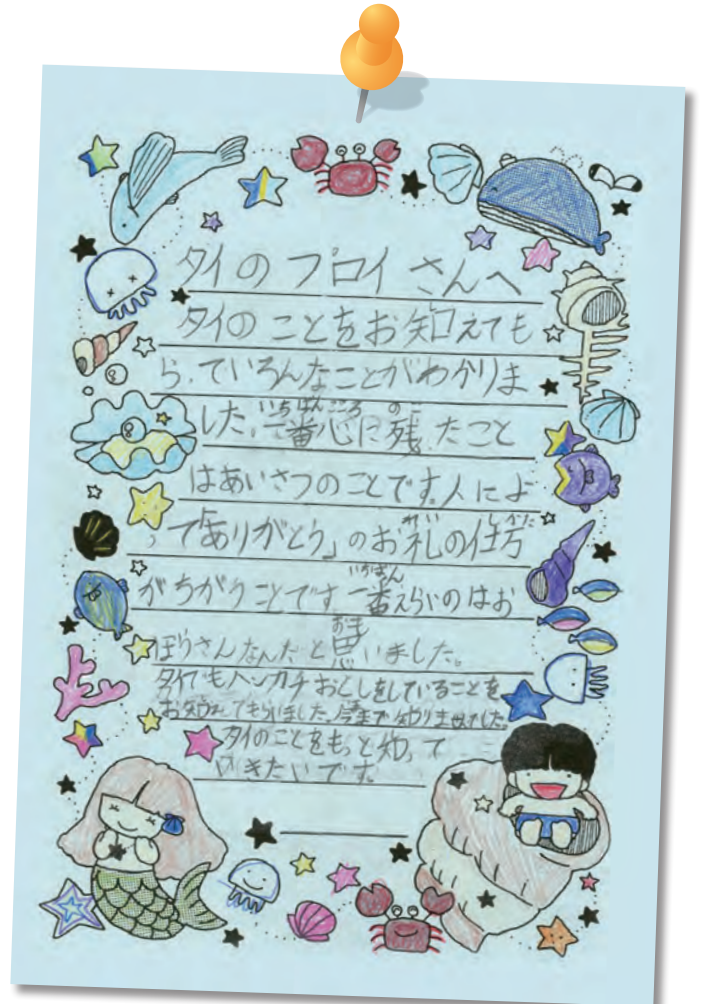 タイの プロイ さんへ
タイの ことをお知えても
らっていろんなことがわかりま
した。一番心に残ったこと
いちばんこころ のこ
はあいさつのことです。人によ
って「ありがとう」のお礼の仕方
れい しかた
がちがうことです。一番えらいのはお
いちばん
ぼうさんなんだと思いました。
おも
タイでもハンカチおとしをしていることを
お知えてもらいました。今まで知りませんでした。
タイのことをもっと知って
いきたいです。